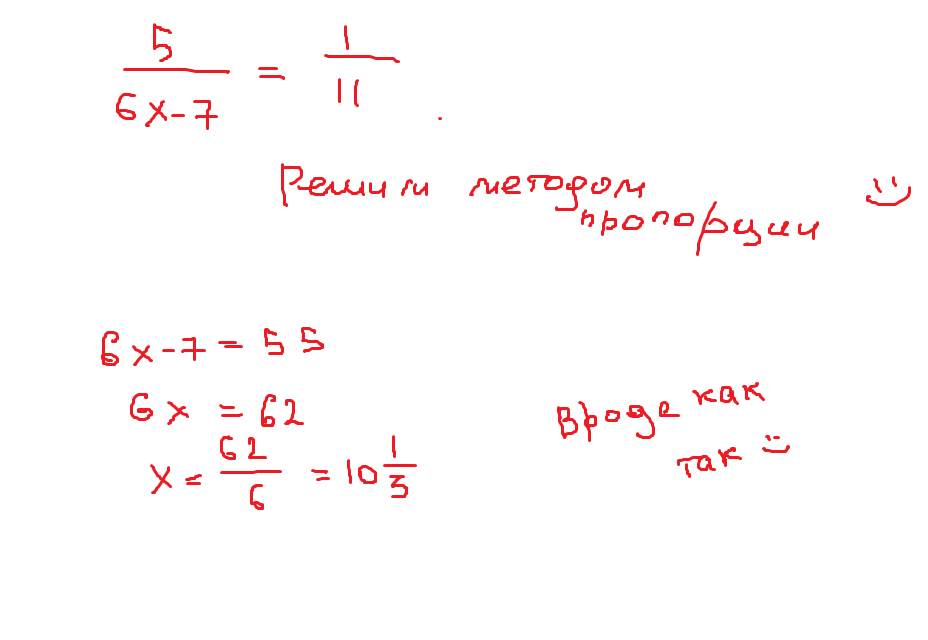 5/(6x-7) = 1/11 .
Решим методом
пропорции
6x-7=55
6x = 62
x = 62/6 = 10 1/3
Вроде как
так